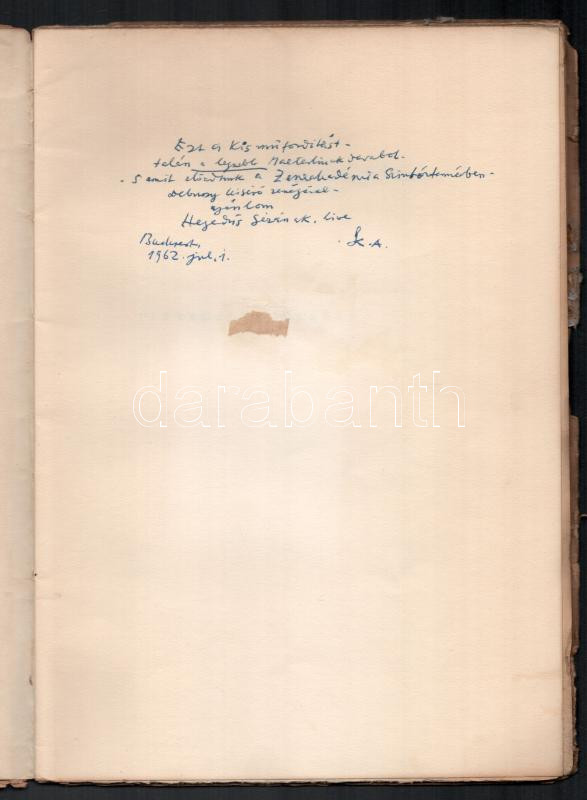 Ezt a kis műfordítást -
talán a legszebb Maeterlinck darabot -
- s amit előadtunk a Zeneakadémia
Debussy kísérő zenéjével -
ajánlom
Hegedűs Gézának, híve
Budapest,
1962. jul. 1.
darabanth